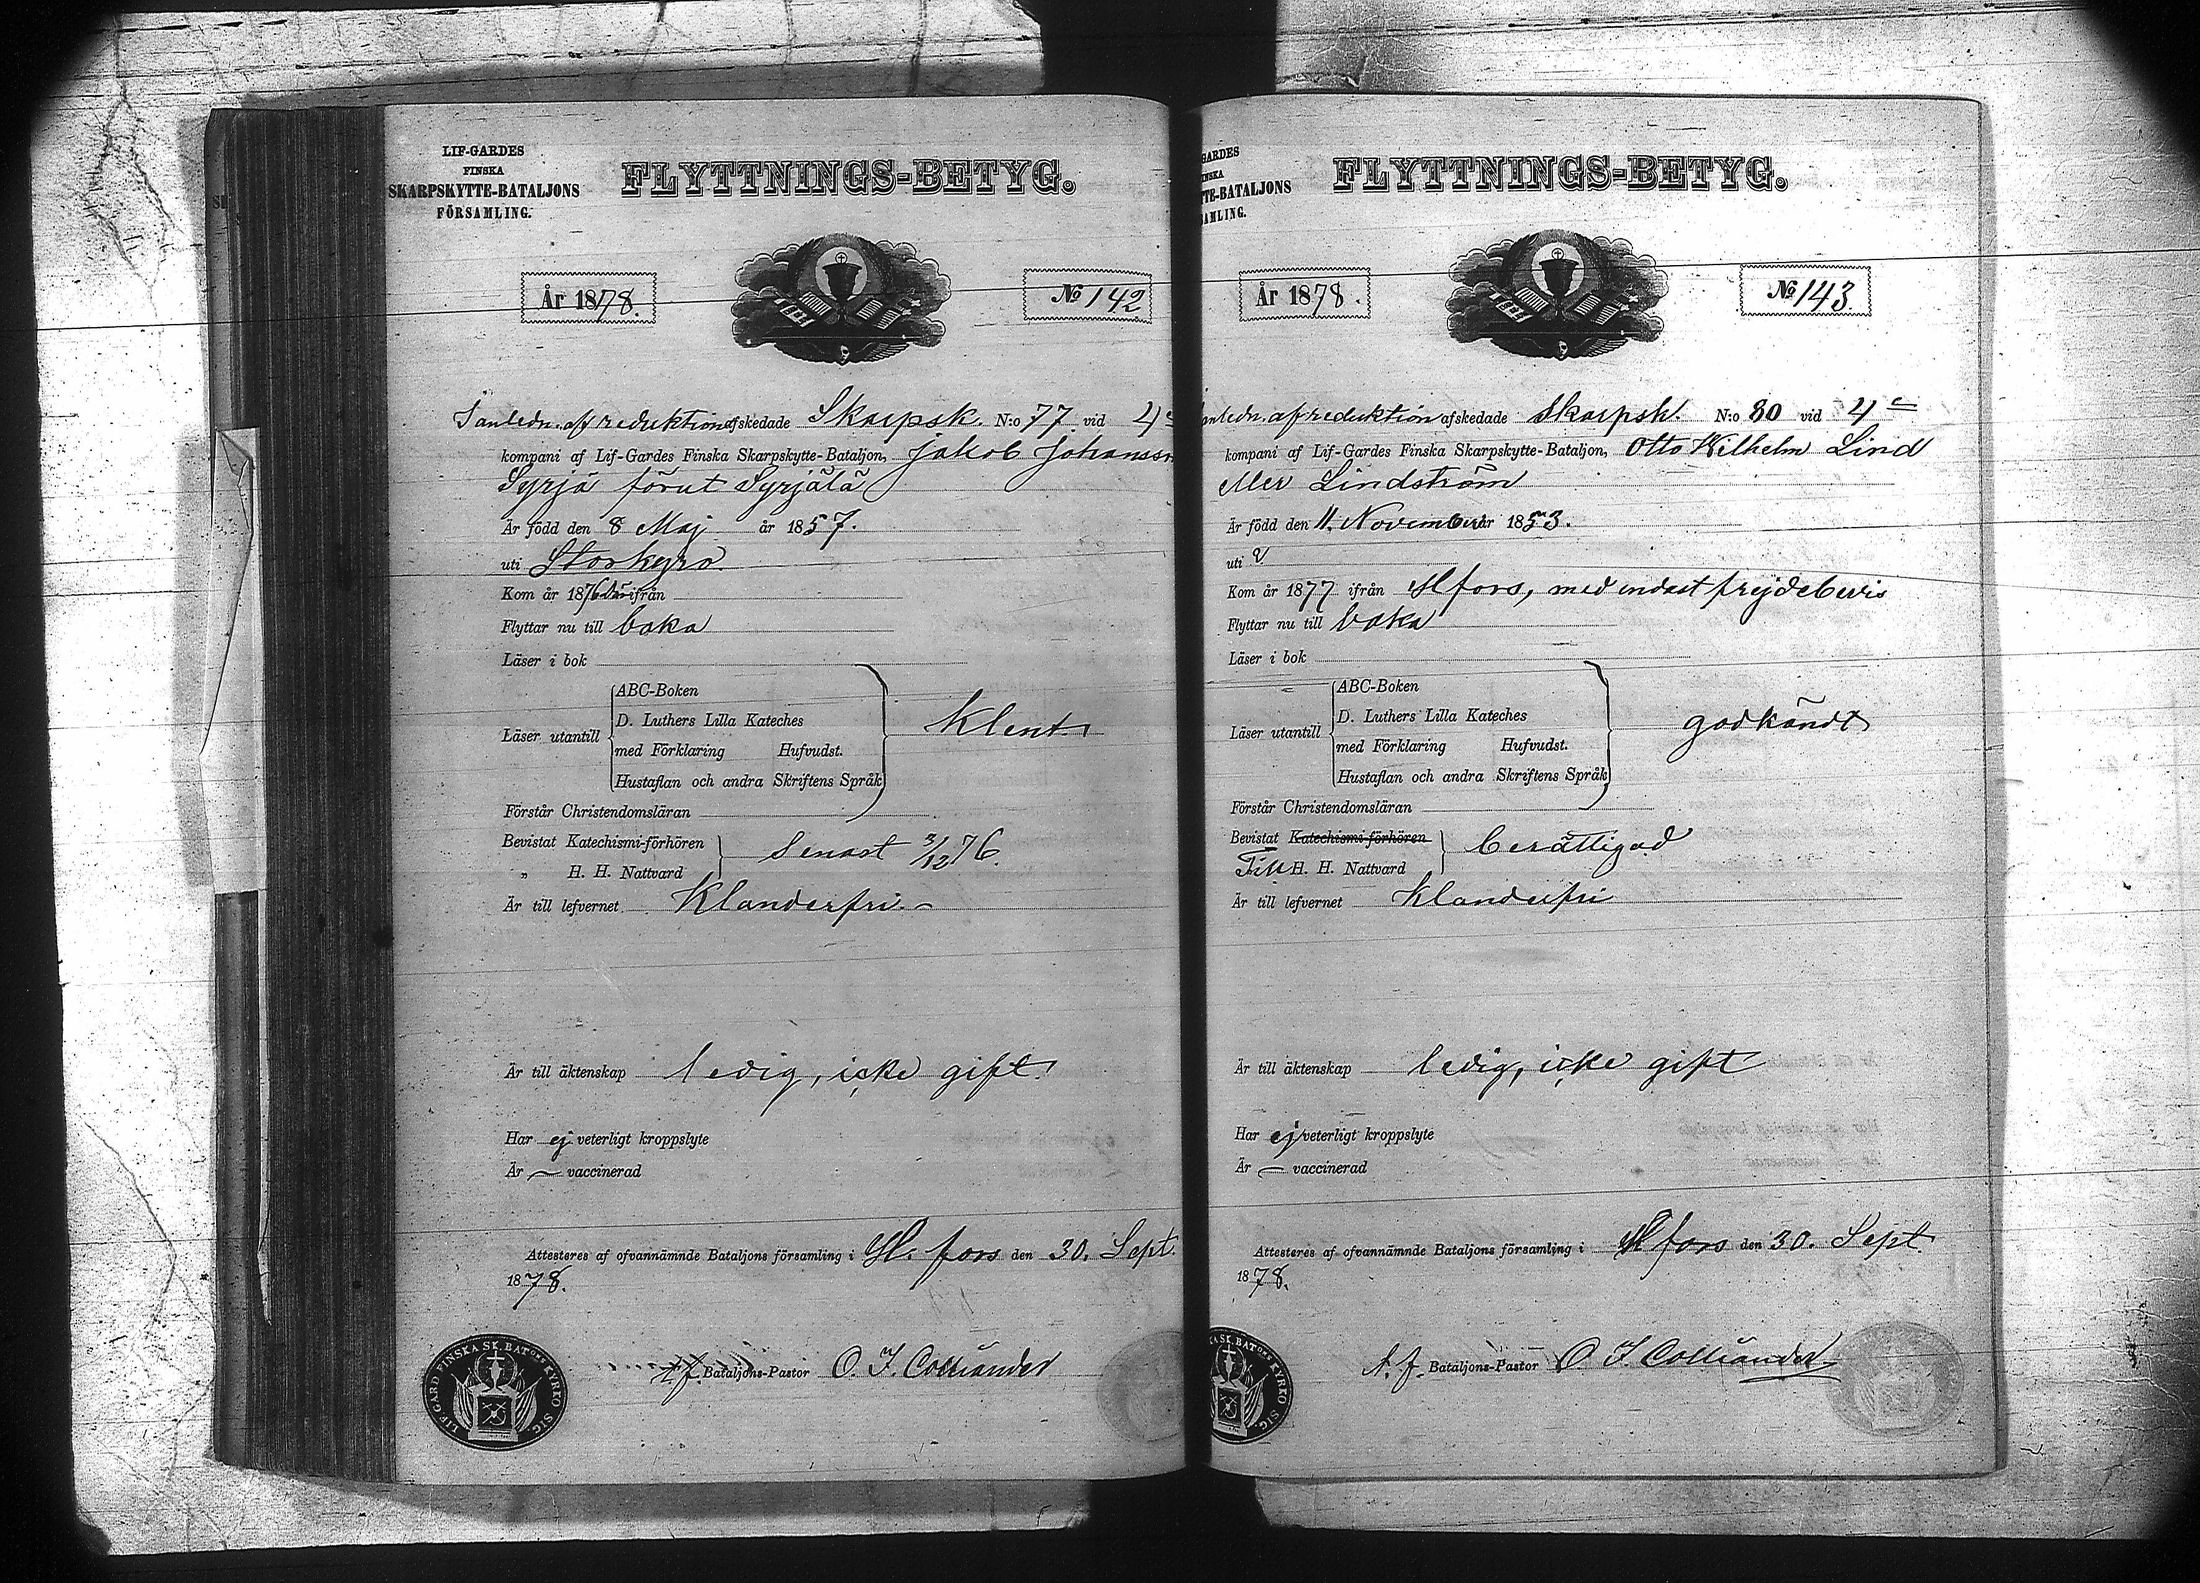 LIF-GARDES
FINSKA
SKARPSKYTTE-BATALJONS
FÖRSAMLING.
FLYTTNINGS-BETYG.
År 1878.
No 142
I anledn. af reduktion afskedade Skarpsk. N:o 77 vid 4
kompani af Lif-Gardes Finska Skarpskytte-Bataljon, Jakob Johansson
Syrjä förut Syrjälä
Är född den 8 Maj år 1857.
uti Storkyro
Kom år 1876 ifrån
Flyttar nu till baka
Läser i bok
ABC-Boken
D. Luthers Lilla Kateches
Läser utantill
med Förklaring Hufvudst.
Hustaflan och andra Skriftens Språk
Klent
Förstår Christendomsläran
Bevistat Katechismi-förhören
„ H. H. Nattvard
Senast 3/12 76.
Är till lefvernet Klanderfri.
Är till äktenskap ledig, icke gift.
Har ej veterligt kroppslyte
Är — vaccinerad
Attesteras af ofvannämnde Bataljons församling i H. fors den 30. Sept.
1878.
t.f. Bataljons-Pastor O. I. Colliander
LIF-GARD FINSKA SK. BATONS KYRKO SIG.
GARDES
NSKA
TE-BATALJONS
AMLING.
FLYTTNINGS-BETYG.
År 1878.
No 143.
anledn. af reduktion afskedade Skarpsk. N:o 80 vid 4e
kompani af Lif-Gardes Finska Skarpskytte-Bataljon, Otto Wilhelm Lind
eller Lindström
Är född den 11. November år 1853.
uti
Kom år 1877 ifrån Hfors, med endast frejdebevis
Flyttar nu till baka
Läser i bok
ABC-Boken
D. Luthers Lilla Kateches
Läser utantill
med Förklaring Hufvudst.
Hustaflan och andra Skriftens Språk
godkändt
Förstår Christendomsläran
Bevistat Katechismi-förhören
Till H. H. Nattvard
berättigad
Är till lefvernet Klanderfri
Är till äktenskap ledig, icke gift
Har ej veterligt kroppslyte
Är — vaccinerad
Attesteras af ofvannämnde Bataljons församling i Hfors den 30. Sept.
1878.
t. f. Bataljons-Pastor O. I. Colliander
KA SK. BATONS KYRKO SIG.